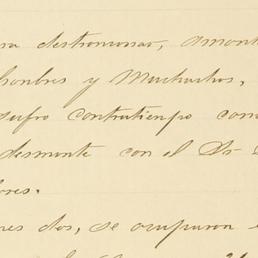 destroncar, amont
hombres y Muchachos,
sufro contratiempo com
desmonte con el Sr
ores.
res dos, se ocuparon